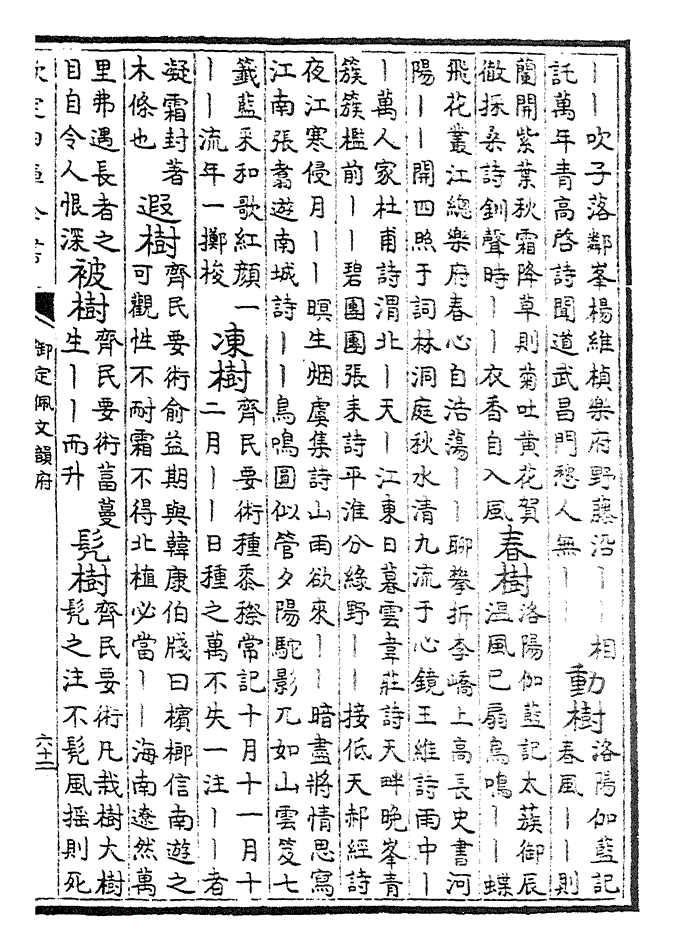 ｜｜吹子落鄰峯楊維楨樂府野藤沿｜｜相
託萬年青高啓詩聞道武昌門愁人無｜｜
動樹
洛陽伽藍記
春風｜｜則
蘭開紫葉秋霜降草則菊吐黃花賀
徹採桑詩釧聲時｜｜衣香自入風
春樹
洛陽伽藍記太蔟御辰
温風已扇鳥鳴｜｜蝶
飛花叢江總樂府春心自浩蕩｜｜聊攀折李嶠上高長史書河
陽｜｜開四照于詞林洞庭秋水清九流于心鏡王維詩雨中｜
｜萬人家杜甫詩渭北｜天｜江東日暮雲韋莊詩天畔晚峯青
簇簇檻前｜｜碧團團張耒詩平淮分緑野｜｜接低天郝經詩
夜江寒侵月｜｜暝生烟虞集詩山雨欲來｜｜暗盡將情思寫
江南張翥遊南城詩｜｜鳥鳴圓似管夕陽駝影兀如山雲笈七
籤藍采和歌紅顔一
｜｜流年一擲梭
凍樹
齊民要術種黍穄常記十月十一月十
二月｜｜日種之萬不失一注｜｜者
凝霜封著
木條也
遐樹
齊民要術俞益期與韓康伯牋曰檳榔信南遊之
可觀性不耐霜不得北植必當｜｜海南遼然萬
里弗遇長者之
目自令人恨深
被樹
齊民要術葍蔓
生｜｜而升
髡樹
齊民要術凡栽樹大樹
髡之注不髡風摇則死
欽定四庫全書
御定佩文韻府
六十二